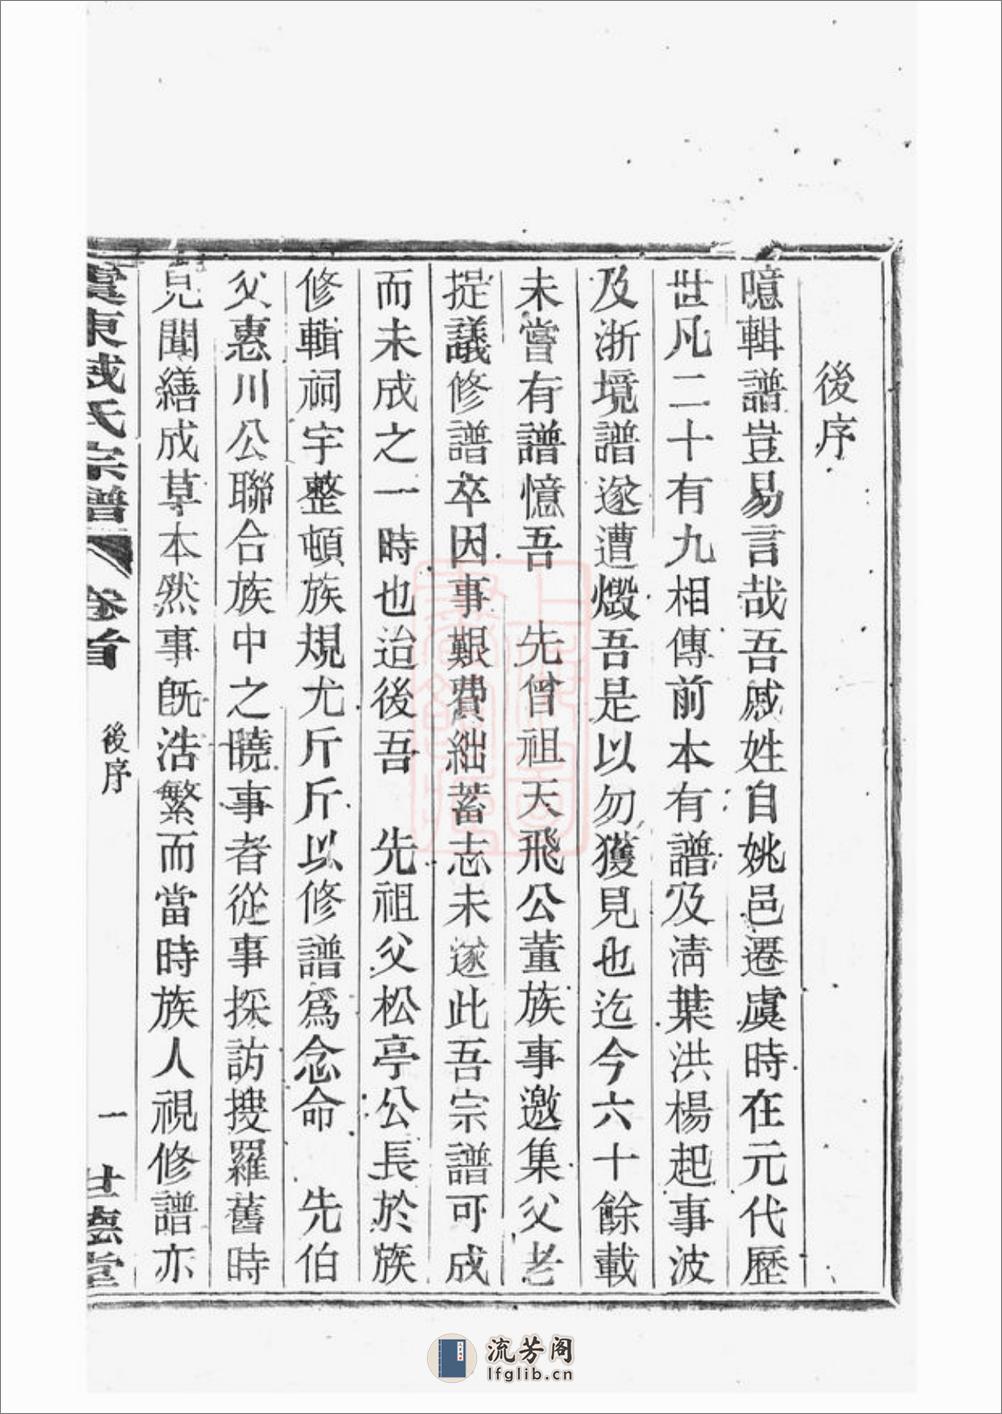 後序
噫輯譜豈易言哉吾戚姓自姚邑遷虞時在元代歷
世凡二十有九相傳前本有譜及淸葉洪楊起事波
及浙境譜遂遭燬吾是以勿獲見也迄今六十餘載
未嘗有譜憶吾 先曾祖天飛公董族事邀集父老
提議修譜卒因事艱費絀蓄志未遂此吾宗譜可成
而未成之一時也迨後吾 先祖父松亭公長於族
修輯祠宇整頓族規尤斤斤以修譜爲念命 先伯
父惠川公聯合族中之曉事者從事採訪搜羅舊時
見聞繕成草本然事旣浩繁而當時族人視修譜亦
虞東戚氏宗譜 卷首 後序 一 世德堂
流芳阁
lfglib.cn